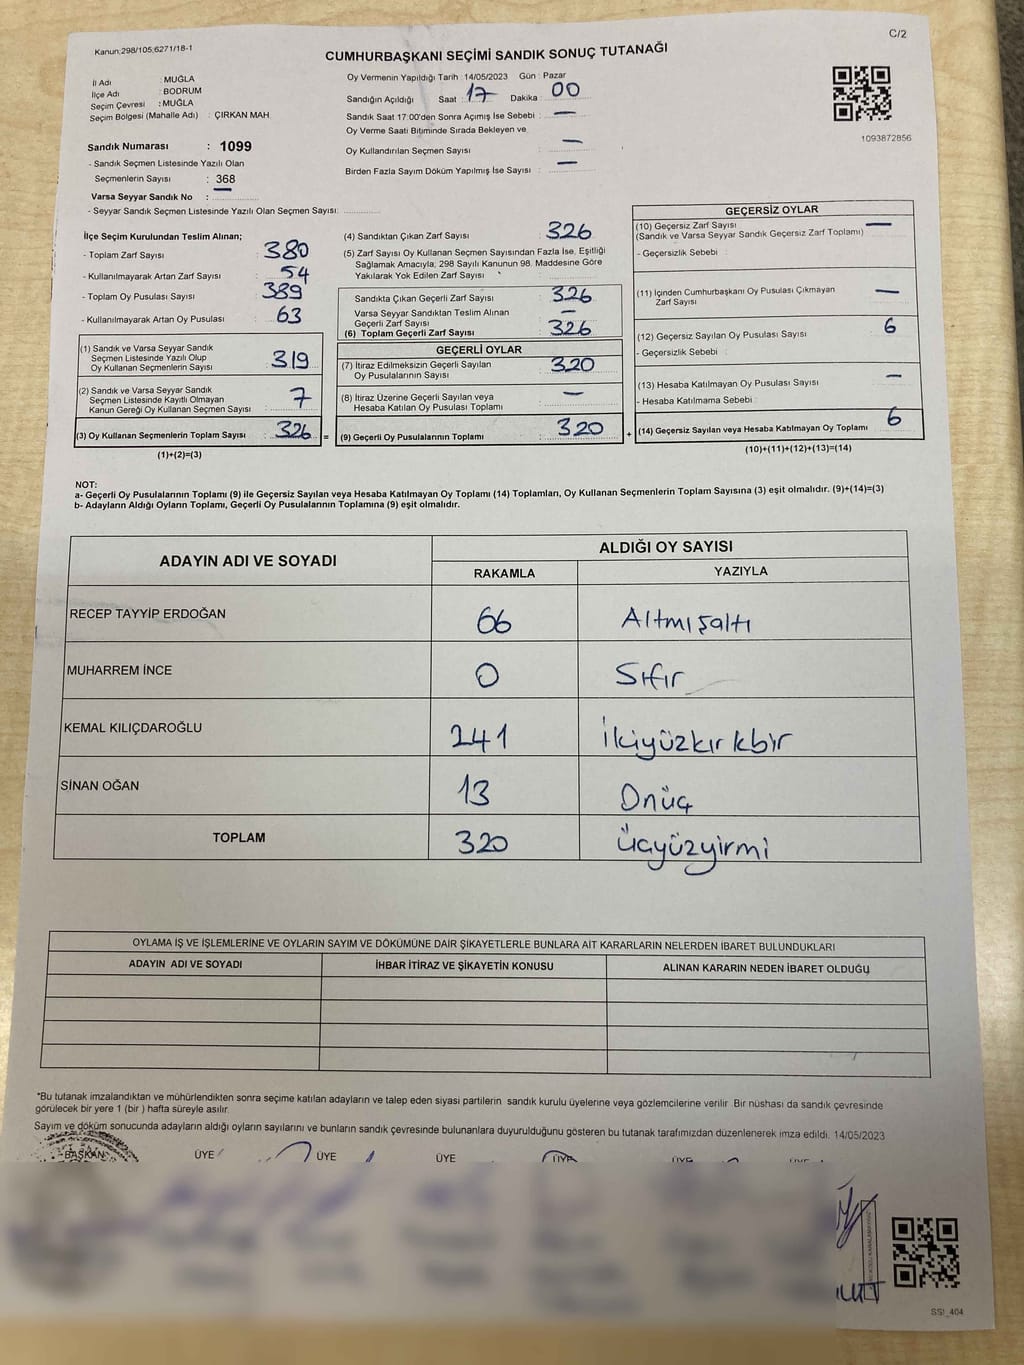 Kanun:298/105;6271/18-1
C/2
CUMHURBAŞKANI SEÇİMİ SANDIK SONUÇ TUTANAĞI
İl Adı : MUĞLA
İlçe Adı : BODRUM
Seçim Çevresi : MUĞLA
Seçim Bölgesi (Mahalle Adı) : ÇIRKAN MAH.
Oy Vermenin Yapıldığı Tarih : 14/05/2023 Gün : Pazar
Sandığın Açıldığı Saat : 17 Dakika : 00
Sandık Saat 17:00'den Sonra Açımış İse Sebebi : —
Oy Verme Saati Bitiminde Sırada Bekleyen ve
Oy Kullandırılan Seçmen Sayısı : —
Birden Fazla Sayım Döküm Yapılmış İse Sayısı : —
1093872856
Sandık Numarası : 1099
- Sandık Seçmen Listesinde Yazılı Olan
Seçmenlerin Sayısı : 368
Varsa Seyyar Sandık No : —
- Seyyar Sandık Seçmen Listesinde Yazılı Olan Seçmen Sayısı:
İlçe Seçim Kurulundan Teslim Alınan;
- Toplam Zarf Sayısı : 380
- Kullanılmayarak Artan Zarf Sayısı : 54
- Toplam Oy Pusulası Sayısı : 389
- Kullanılmayarak Artan Oy Pusulası : 63
(1) Sandık ve Varsa Seyyar Sandık
Seçmen Listesinde Yazılı Olup
Oy Kullanan Seçmenlerin Sayısı : 319
(2) Sandık ve Varsa Seyyar Sandık
Seçmen Listesinde Kayıtlı Olmayan
Kanun Gereği Oy Kullanan Seçmen Sayısı : 7
(3) Oy Kullanan Seçmenlerin Toplam Sayısı : 326 =
(1)+(2)=(3)
(4) Sandıktan Çıkan Zarf Sayısı : 326
(5) Zarf Sayısı Oy Kullanan Seçmen Sayısından Fazla İse, Eşitliği
Sağlamak Amacıyla, 298 Sayılı Kanunun 98. Maddesine Göre
Yakılarak Yok Edilen Zarf Sayısı :
Sandıkta Çıkan Geçerli Zarf Sayısı : 326
Varsa Seyyar Sandıktan Teslim Alınan
Geçerli Zarf Sayısı : —
(6) Toplam Geçerli Zarf Sayısı : 326
GEÇERLİ OYLAR
(7) İtiraz Edilmeksizin Geçerli Sayılan
Oy Pusulalarının Sayısı : 320
(8) İtiraz Üzerine Geçerli Sayılan veya
Hesaba Katılan Oy Pusulası Toplamı : —
(9) Geçerli Oy Pusulalarının Toplamı : 320 +
GEÇERSİZ OYLAR
(10) Geçersiz Zarf Sayısı : —
(Sandık ve Varsa Seyyar Sandık Geçersiz Zarf Toplamı)
- Geçersizlik Sebebi :
(11) İçinden Cumhurbaşkanı Oy Pusulası Çıkmayan
Zarf Sayısı : —
(12) Geçersiz Sayılan Oy Pusulası Sayısı : 6
- Geçersizlik Sebebi :
(13) Hesaba Katılmayan Oy Pusulası Sayısı : —
- Hesaba Katılmama Sebebi :
(14) Geçersiz Sayılan veya Hesaba Katılmayan Oy Toplamı : 6
(10)+(11)+(12)+(13)=(14)
NOT:
a- Geçerli Oy Pusulalarının Toplamı (9) ile Geçersiz Sayılan veya Hesaba Katılmayan Oy Toplamı (14) Toplamları, Oy Kullanan Seçmenlerin Toplam Sayısına (3) eşit olmalıdır. (9)+(14)=(3)
b- Adayların Aldığı Oyların Toplamı, Geçerli Oy Pusulalarının Toplamına (9) eşit olmalıdır.
ADAYIN ADI VE SOYADI ALDIĞI OY SAYISI
RAKAMLA YAZIYLA
RECEP TAYYİP ERDOĞAN 66 Altmışaltı
MUHARREM İNCE 0 Sıfır
KEMAL KILIÇDAROĞLU 241 İkiyüzkırkbir
SİNAN OĞAN 13 Onüç
TOPLAM 320 Üçyüzyirmi
OYLAMA İŞ VE İŞLEMLERİNE VE OYLARIN SAYIM VE DÖKÜMÜNE DAİR ŞİKAYETLERLE BUNLARA AİT KARARLARIN NELERDEN İBARET BULUNDUKLARI
ADAYIN ADI VE SOYADI İHBAR İTİRAZ VE ŞİKAYETİN KONUSU ALINAN KARARIN NEDEN İBARET OLDUĞU
*Bu tutanak imzalandıktan ve mühürlendikten sonra seçime katılan adayların ve talep eden siyasi partilerin sandık kurulu üyelerine veya gözlemcilerine verilir. Bir nüshası da sandık çevresinde
görülecek bir yere 1 (bir ) hafta süreyle asılır.
Sayım ve döküm sonucunda adayların aldığı oyların sayılarını ve bunların sandık çevresinde bulunanlara duyurulduğunu gösteren bu tutanak tarafımızdan düzenlenerek imza edildi. 14/05/2023
BAŞKAN ÜYE ÜYE ÜYE ÜYE ÜYE
SSI_404